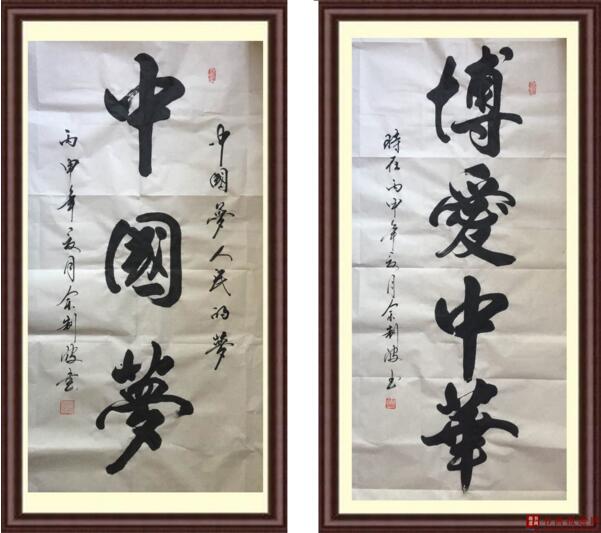 中國夢人民的夢
中國夢
丙申年夏月余制波書
博愛中華
時在丙申年夏月余制波书